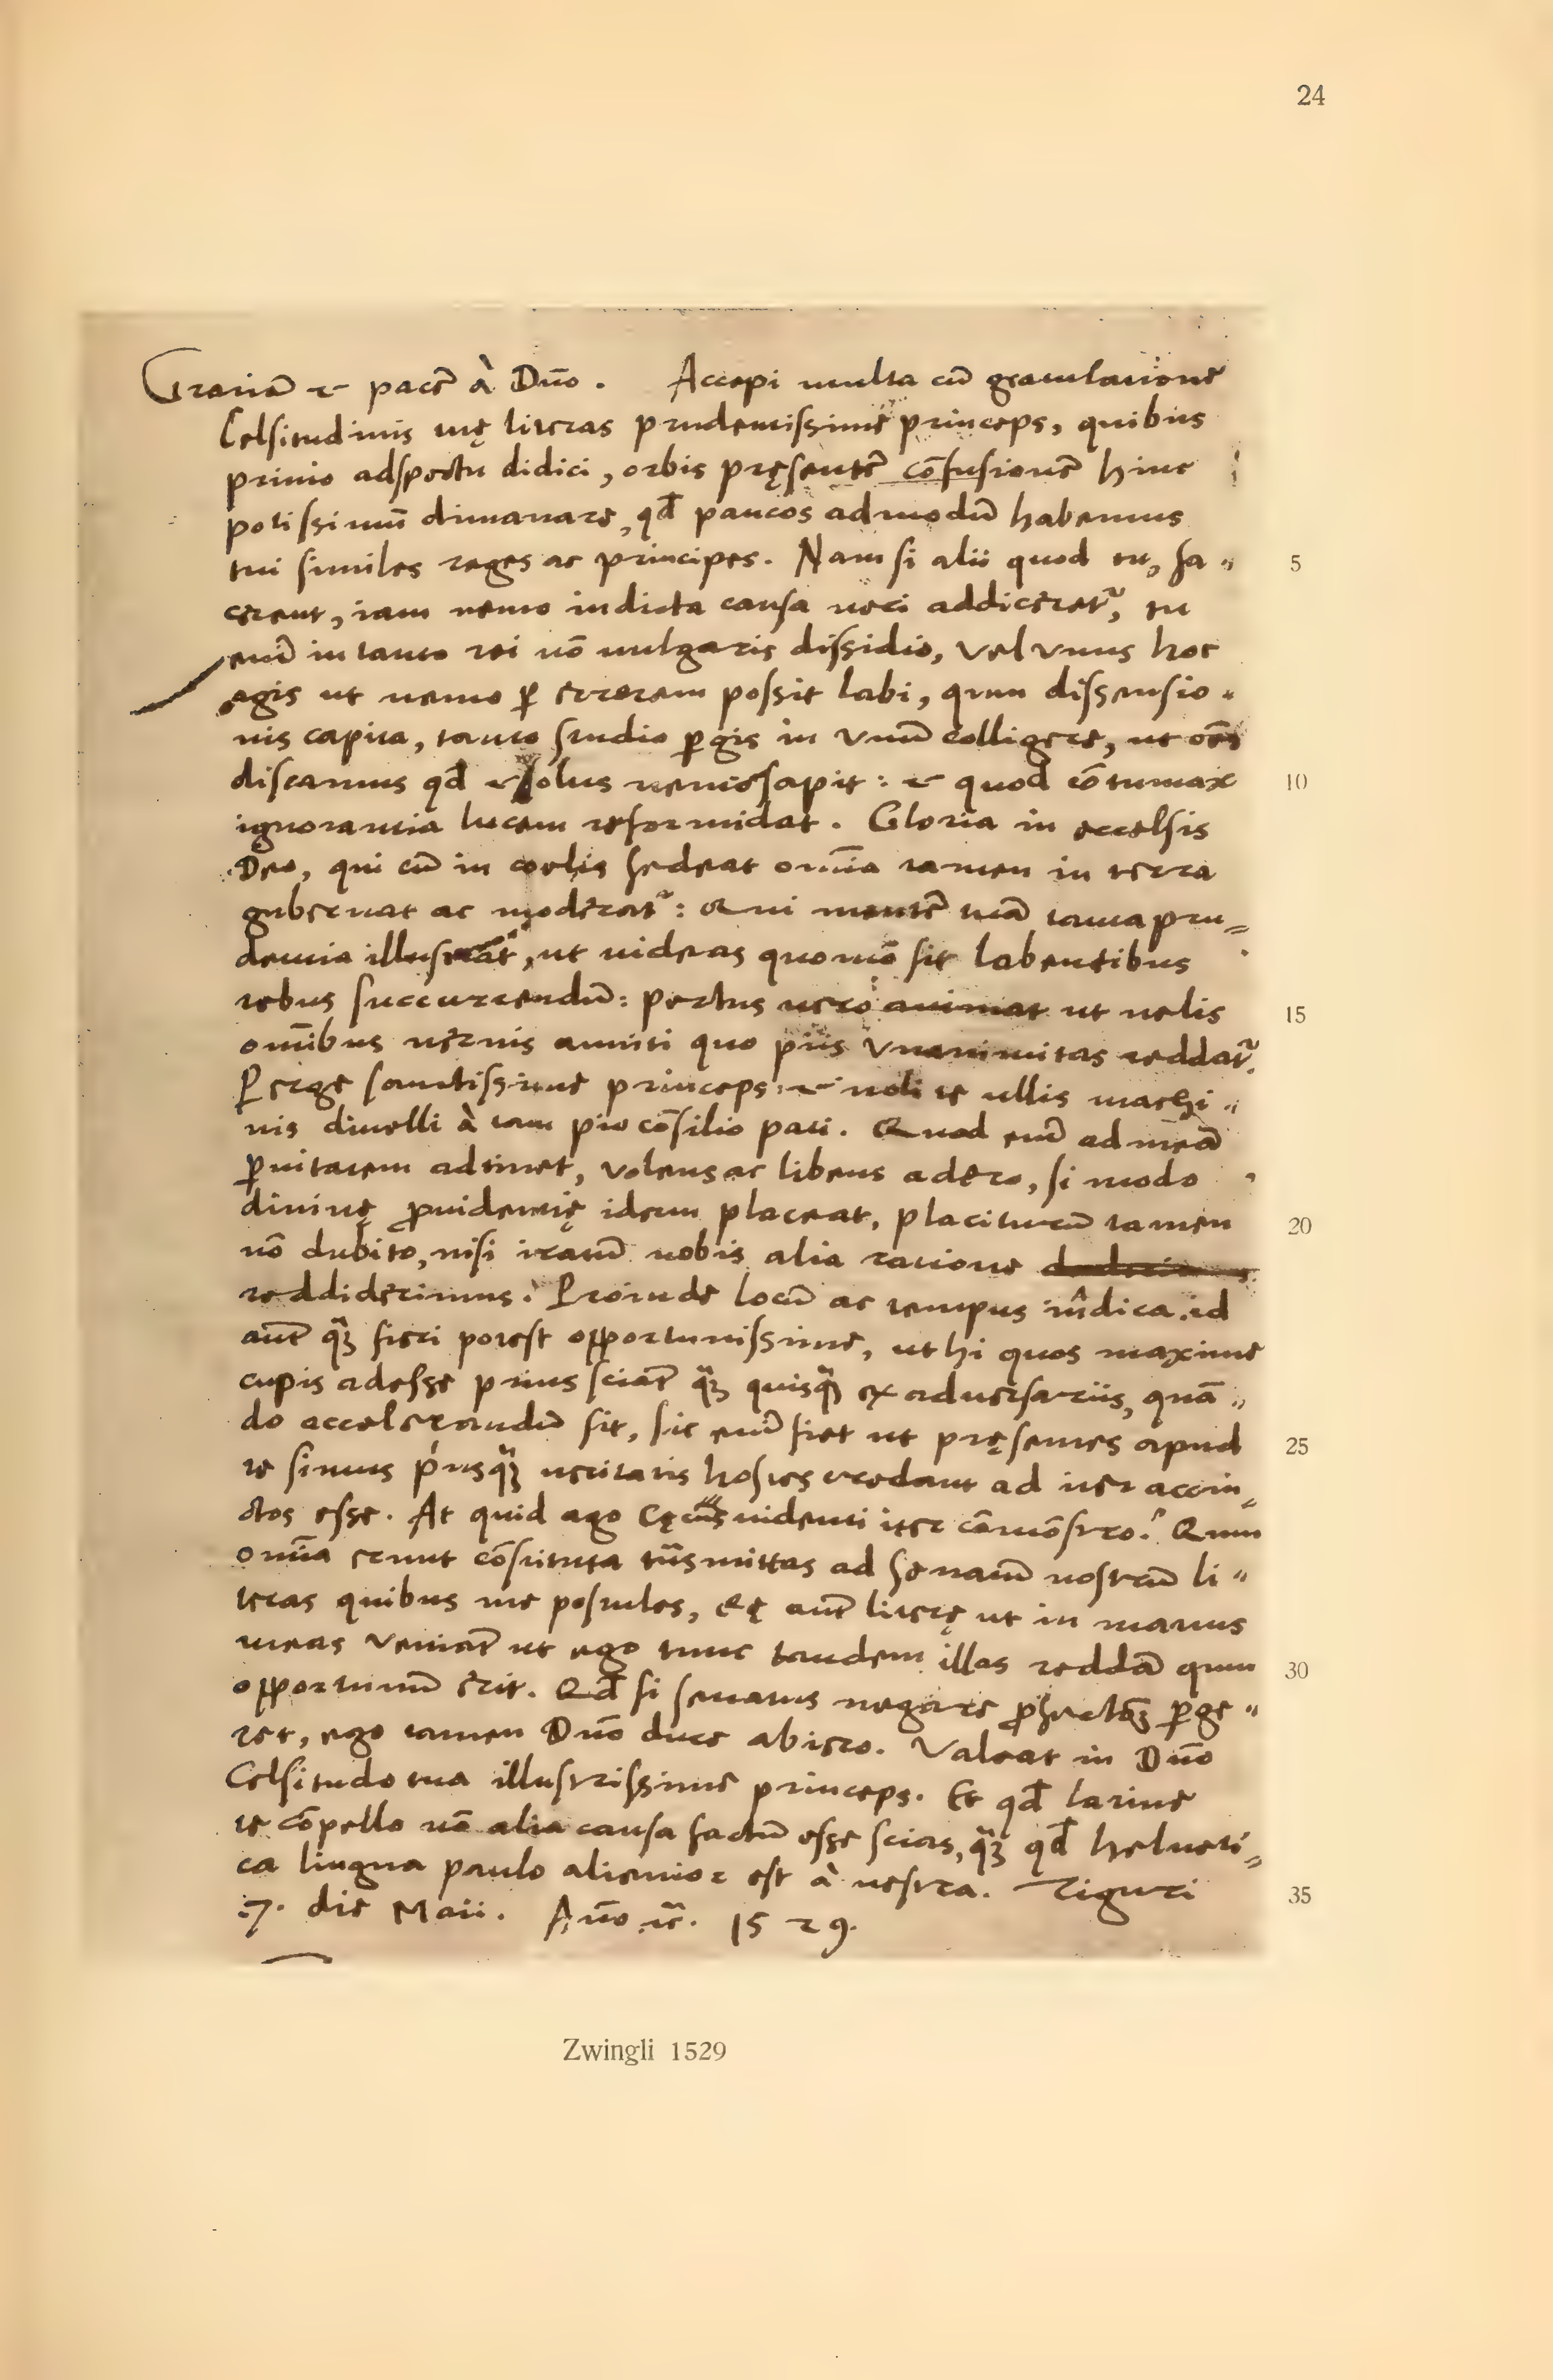 24
Gratiā & pacē à Dn̄o. Accepi multa cū gratulatione
Celsitudinis tuę literas prudentissime princeps, quibus
primo adspectu didici, orbis pręsentē cōfusionē hinc
potissimū dimanare, qd̄ paucos admodū habemus
tui similes reges ac principes. Nam si alii quod tu, fa„
5
cerent, iam nemo indicta causa neci addiceret᷑, tu
enī in tanto rei nō uulgaris dissidio, vel vnus hoc
agis ut nemo ꝑ errorem possit labi, qum dissensio„
nis capita, tanto studio ꝑgis in vnū colligere, ut oēs
discamus qd̄ solus sapit: & quod cōtumax
10
ignorantia lucem reformidat. Gloria in eccelsis
Deo, qui cū in coelis sedeat omīa tamen in terra
gubernat ac moderat᷑: Qui mentē tuā tanta pru„
dentia illustrat, ut uideas quomō sit labentibus
rebus succurrendū: pectus uero animat ut uelis
15
omībus neruis anniti quo piis vnanimitas reddat᷑.
Perge sanctissime princeps, & noli te ullis machi„
nis diuelli à tam pio cōsilio pati. Quod enī ad meā
ꝑuitatem adtinet, volens ac libens adero, si modo
diuinę ꝓuidentię idem placeat, placiturū tamen
20
nō dubito, nisi iratū nobis alia ratione
reddiderimus. Proinde locū ac tempus indica id
autē q̄ꝫ fieri potest opportunissime, ut hi quos maxime
cupis adesse prius sciāt q̄ꝫ quisq̄ꝫ ex aduersariis, quā„
do accelerandū sit, sic enī fiet ut pręsentes apud
25
te simus priusq̄ꝫ ueritatis hostes credant ad iter accin„
ctos esse. At quid ago cęcus uidenti iter cōmōstro? Qum
omīa erunt cōstituta tūc mittas ad Senatū nostrum li„
teras quibus me postules, Eę autē literę ut in manus
meas veniāt ut ego tunc tandem illas reddā qum
30
opportunū erit. Qd̄ si senatus negare ꝓfectionē ꝑge„
ret, ego tamen Dn̄o duce abiero. Valeat in Dn̄o
Celsitudo tua illustrissime princeps. Et qd̄ latine
te cōpello nō alia causa factū esse scias, q̄ꝫ qd̄ helueti„
ca lingua paulo alienior est à uestra. Tiguri
35
7. die Maii. An̄o &c. 1529.
Zwingli 1529